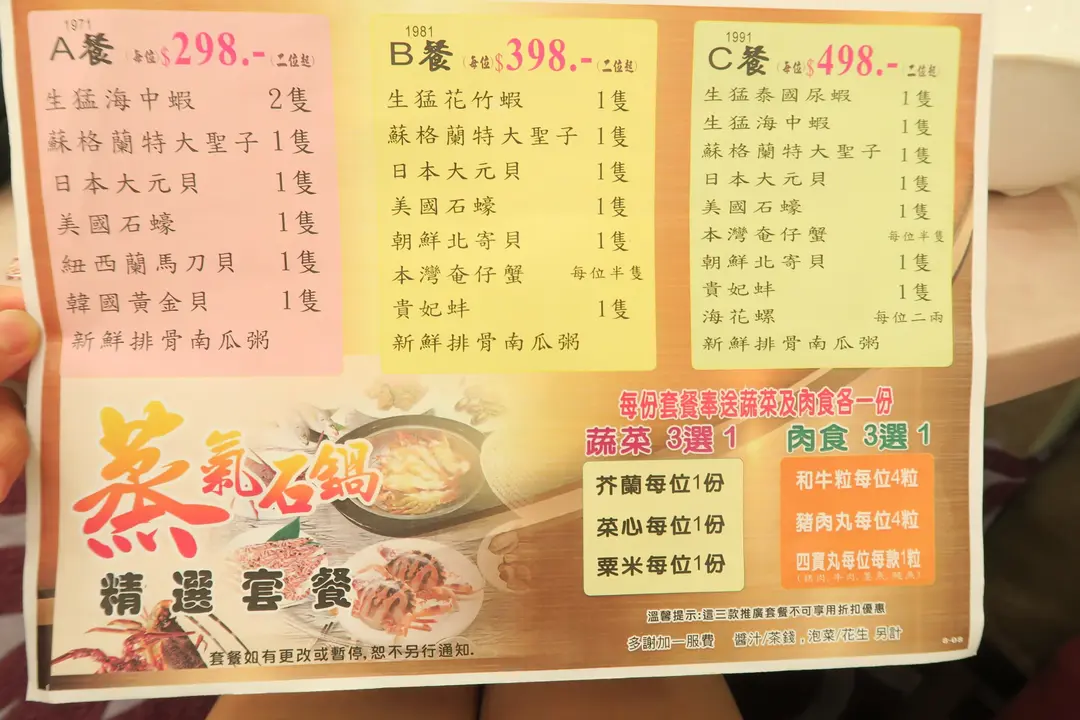 1971
A餐 (每位)$298.-(二位起)
生猛海中蝦 2隻
蘇格蘭特大聖子 1隻
日本大元貝 1隻
美國石蠔 1隻
紐西蘭馬刀貝 1隻
韓國黃金貝 1隻
新鮮排骨南瓜粥
1981
B餐 (每位)$398.-(二位起)
生猛花竹蝦 1隻
蘇格蘭特大聖子 1隻
日本大元貝 1隻
美國石蠔 1隻
朝鮮北寄貝 1隻
本灣奄仔蟹 每位半隻
貴妃蚌 1隻
新鮮排骨南瓜粥
1991
C餐 (每位)$498.-(二位起)
生猛泰國尿蝦 1隻
生猛海中蝦 1隻
蘇格蘭特大聖子 1隻
日本大元貝 1隻
美國石蠔 1隻
本灣奄仔蟹 每位半隻
朝鮮北寄貝 1隻
貴妃蚌 1隻
海花螺 每位二兩
新鮮排骨南瓜粥
蒸氣石鍋
精選套餐
套餐如有更改或暫停,恕不另行通知.
每份套餐奉送蔬菜及肉食各一份
蔬菜 3選1
芥蘭每位1份
菜心每位1份
粟米每位1份
肉食 3選1
和牛粒每位4粒
豬肉丸每位4粒
四寶丸每位每款1粒
(豬肉,牛肉,墨魚,鯪魚)
溫馨提示:這三款推廣套餐不可享用折扣優惠
多謝加一服費 醬汁/茶錢,泡菜/花生 另計